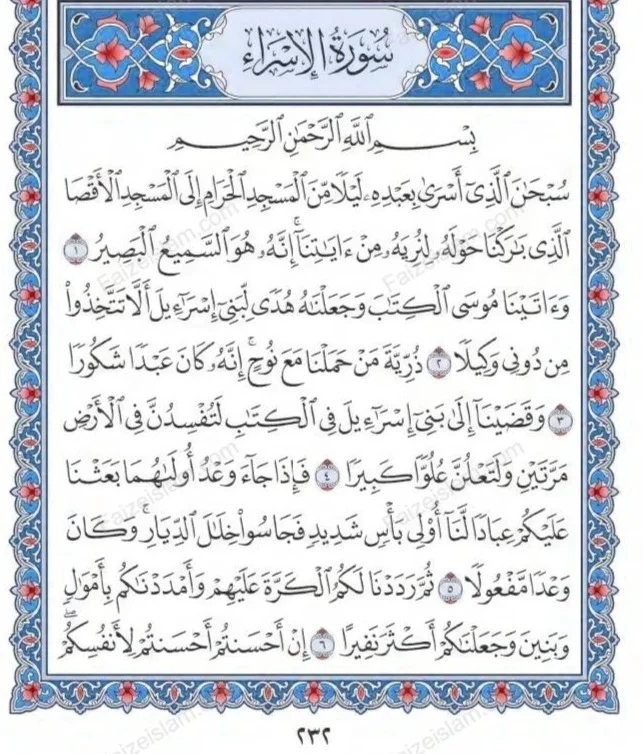 سُورَةُ الإِسْرَاءِ
بِسْمِ ٱللَّهِ ٱلرَّحْمَٰنِ ٱلرَّحِيمِ
سُبْحَٰنَ ٱلَّذِىٓ أَسْرَىٰ بِعَبْدِهِۦ لَيْلًا مِّنَ ٱلْمَسْجِدِ ٱلْحَرَامِ إِلَى ٱلْمَسْجِدِ ٱلْأَقْصَا
ٱلَّذِى بَٰرَكْنَا حَوْلَهُۥ لِنُرِيَهُۥ مِنْ ءَايَٰتِنَآ ۚ إِنَّهُۥ هُوَ ٱلسَّمِيعُ ٱلْبَصِيرُ ١
وَءَاتَيْنَا مُوسَى ٱلْكِتَٰبَ وَجَعَلْنَٰهُ هُدًى لِّبَنِىٓ إِسْرَٰٓءِيلَ أَلَّا تَتَّخِذُوا۟
مِن دُونِى وَكِيلًا ٢ ذُرِّيَّةَ مَنْ حَمَلْنَا مَعَ نُوحٍ ۚ إِنَّهُۥ كَانَ عَبْدًا شَكُورًا
٣ وَقَضَيْنَآ إِلَىٰ بَنِىٓ إِسْرَٰٓءِيلَ فِى ٱلْكِتَٰبِ لَتُفْسِدُنَّ فِى ٱلْأَرْضِ
مَرَّتَيْنِ وَلَتَعْلُنَّ عُلُوًّا كَبِيرًا ٤ فَإِذَا جَآءَ وَعْدُ أُولَىٰهُمَا بَعَثْنَا
عَلَيْكُمْ عِبَادًا لَّنَآ أُو۟لِى بَأْسٍ شَدِيدٍ فَجَاسُوا۟ خِلَٰلَ ٱلدِّيَارِ ۚ وَكَانَ
وَعْدًا مَّفْعُولًا ٥ ثُمَّ رَدَدْنَا لَكُمُ ٱلْكَرَّةَ عَلَيْهِمْ وَأَمْدَدْنَٰكُم بِأَمْوَٰلٍ
وَبَنِينَ وَجَعَلْنَٰكُمْ أَكْثَرَ نَفِيرًا ٦ إِنْ أَحْسَنتُمْ أَحْسَنتُمْ لِأَنفُسِكُمْ ۖ
٢٣٢
Faizeislam.com